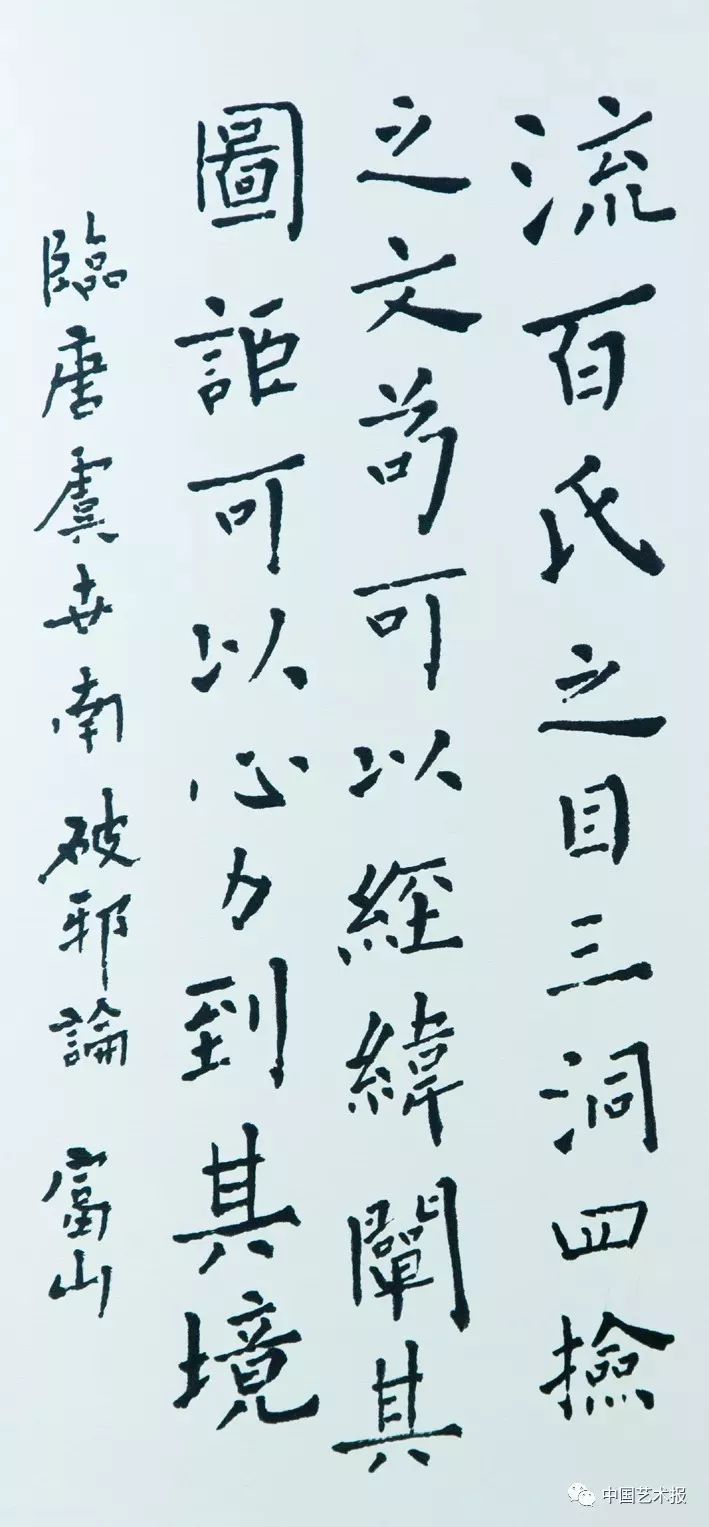 流百氏之目三洞四撿
之文苟可以經緯闡其
圖詎可以心力到其境
臨唐虞世南破邪論 富山
中国艺术报